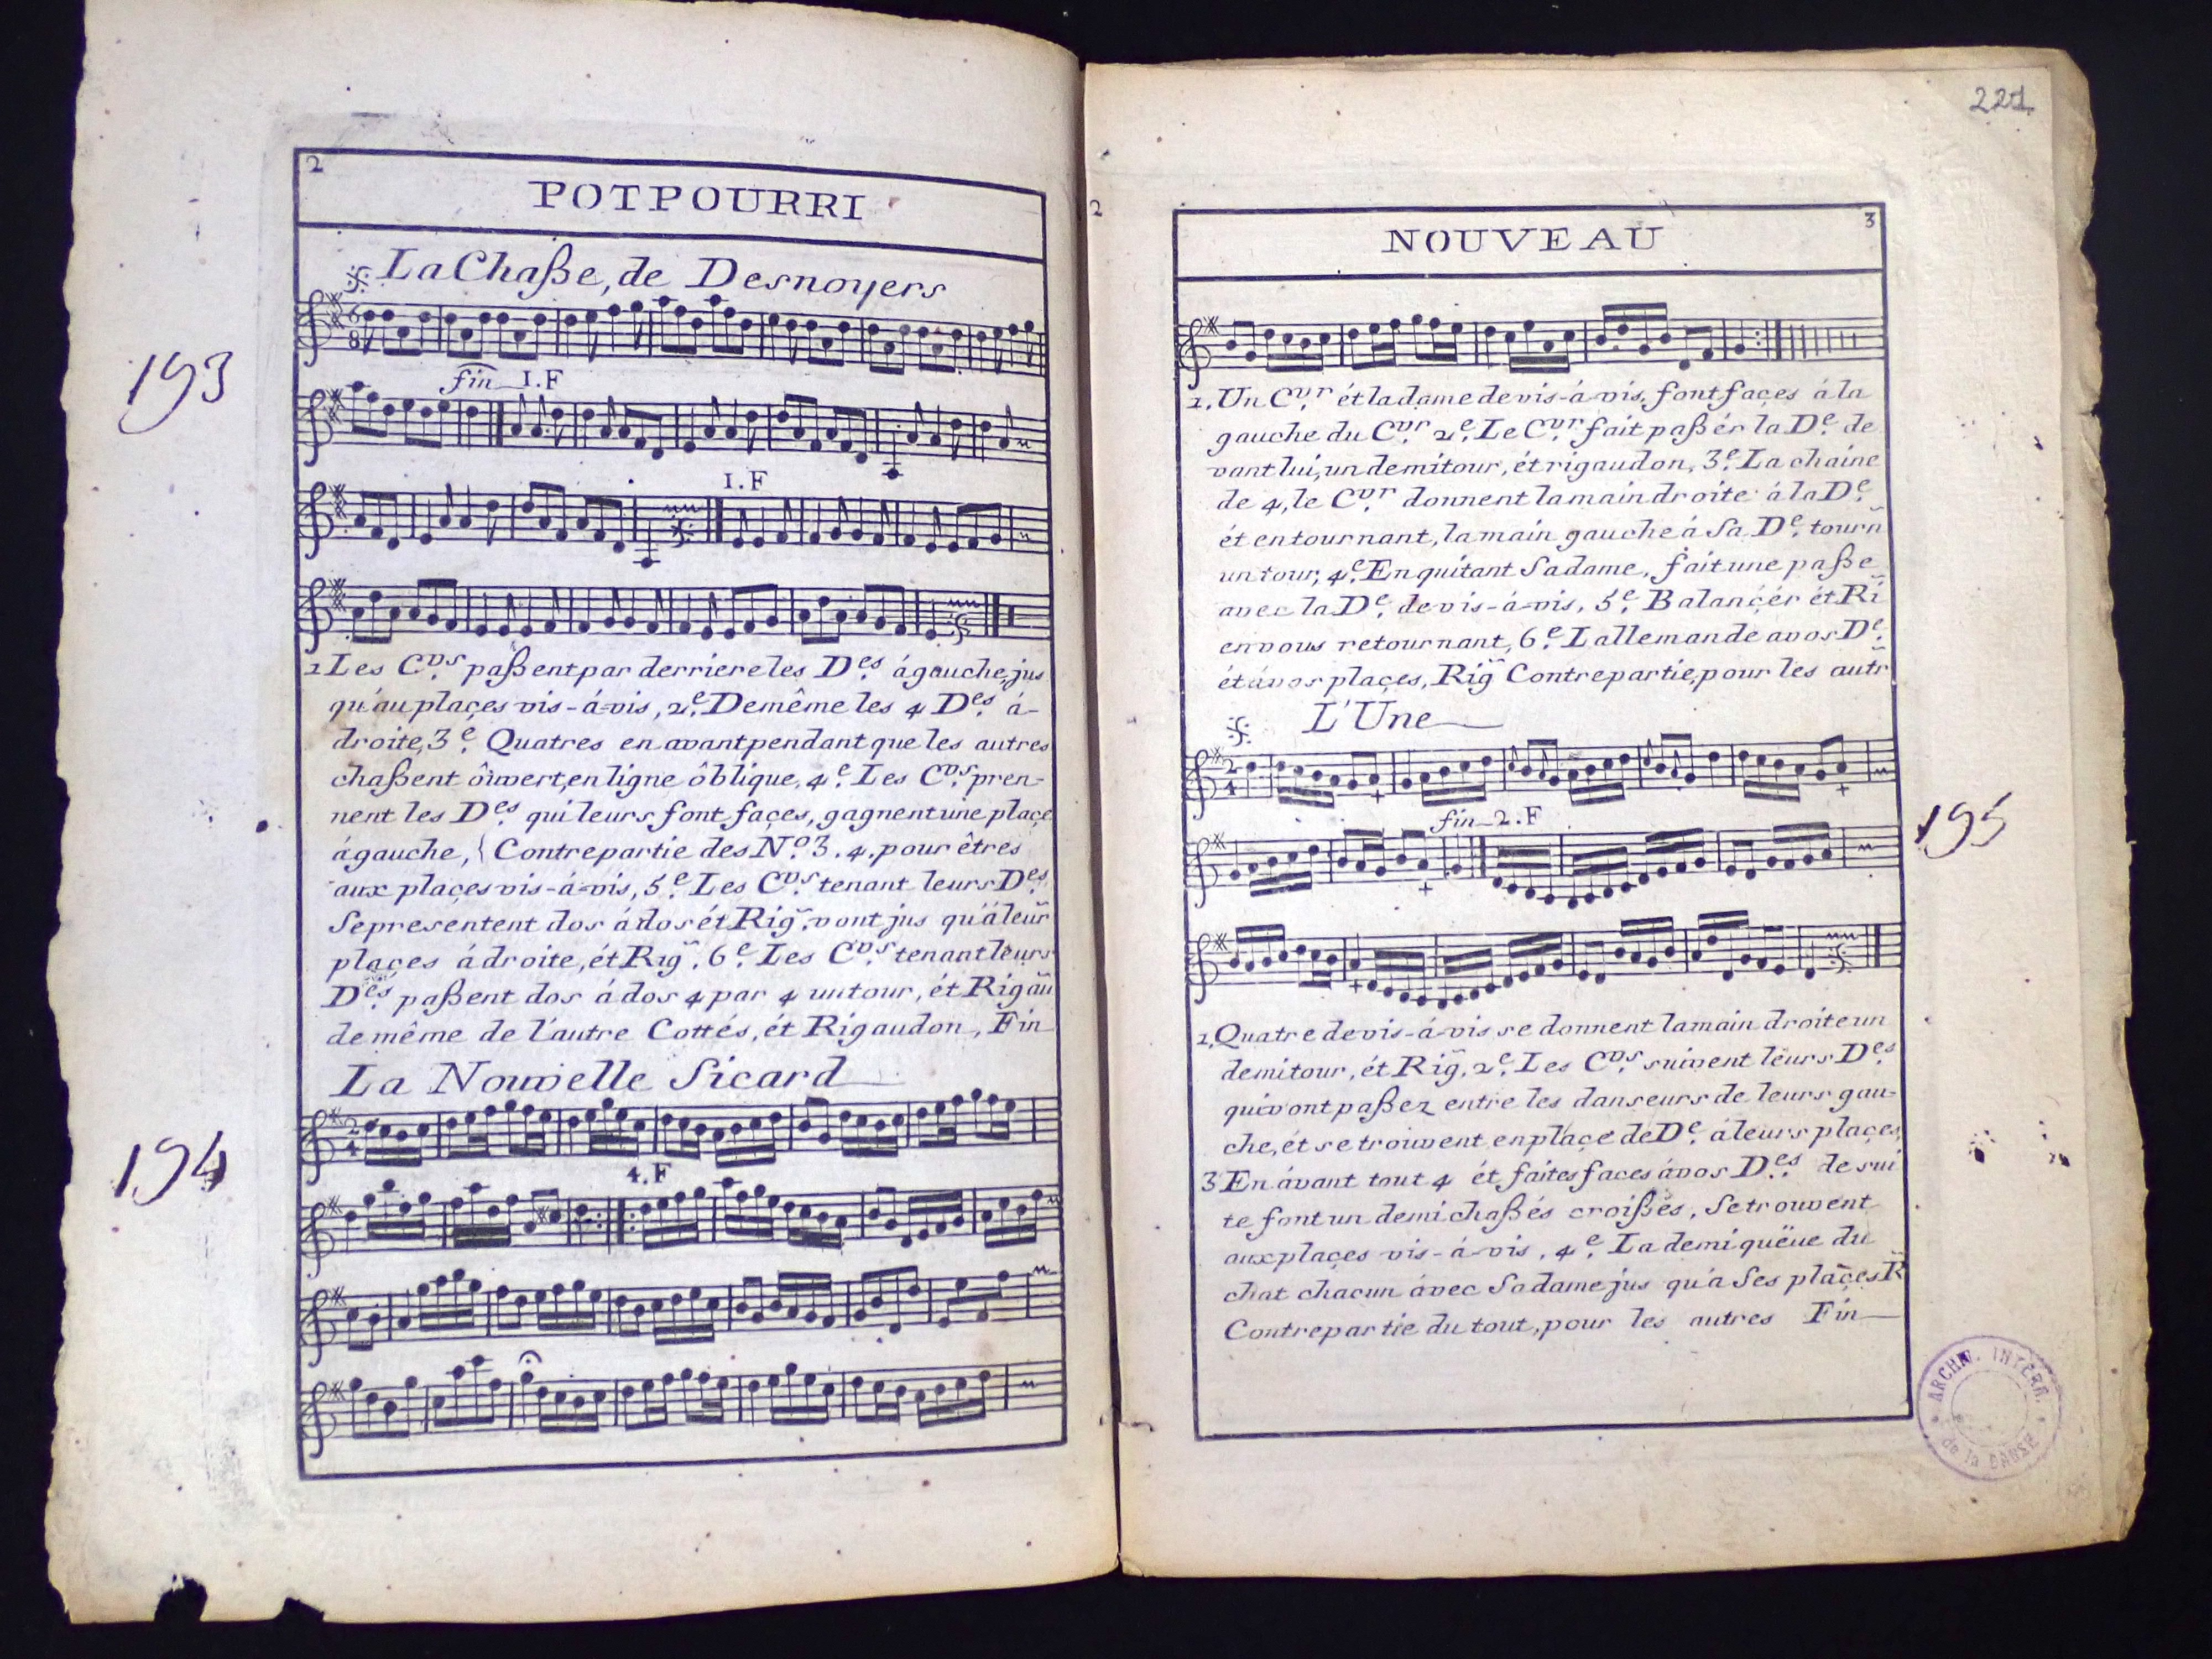 2
POTPOURRI
La Chaße, de Desnoyers
193
fin 1.F
1.F
1 Les Cvrs. paßent par derriere les Des. á gauche, jus
qu'au plaçes vis-á-vis, 2e. De même les 4 Des. á-
droite, 3e. Quatres en avant pendant que les autres
chaßent ôuvert, en ligne ôblique, 4e. Les Cvrs. pren-
nent les Des. qui leurs font façes, gagnent une plaçe
á gauche, { Contrepartie des No. 3. 4. pour êtres
aux plaçes vis-á-vis, 5e. Les Cvrs. tenant leurs Des.
Se presentent dos á dos ét Rig̃. vont jus qu'á leur̃
plaçes á droite, ét Rig̃. 6e. Les Cvrs. tenant leurs
Des. paßent dos á dos 4 par 4 un tour, ét Rigaũ
de même de l'autre Cottés, ét Rigaudon, Fin
La Nouvelle Sicard
194
4.F
221
2
3
NOUVEAU
1. Un Cvr. ét la dame de vis-á-vis, font façes á la
gauche du Cvr. 2e. Le Cvr. fait paßér la De. de
vant lui, un demi tour, ét rigaudon, 3e. La chaine
de 4, le Cvr. donnent la main droite á la De.
ét en tournant, la main gauche á Sa De. tourñ
un tour, 4e. En quitant Sa dame, fait une paße
avec la De. de vis-á-vis, 5e. Balançér ét Rĩ
en vous retournant, 6e. L allemande a vos De.
ét á vos plaçes, Rig̃ Contrepartie, pour les autr̃
L'Une
195
fin 2.F
1, Quatre de vis-á-vis se donnent la main droite un
demi tour, ét Rig̃. 2e. Les Cvrs. suivent leurs Des.
qui vont paßez entre les danseurs de leurs gau-
che, ét se trouvent en plaçe de De. á leurs plaçes,
3 En ávant tout 4 ét faites faces á vos Des. de sui
te font un demi chaßés croißés, Se trouvent
aux plaçes vis-á-vis, 4e. La demi quëue du
chat chacun ávec Sa dame jus qu'a Ses plaçes R̃
Contrepartie du tout, pour les autres Fin
ARCHIV. INTERN.
de la DANSE